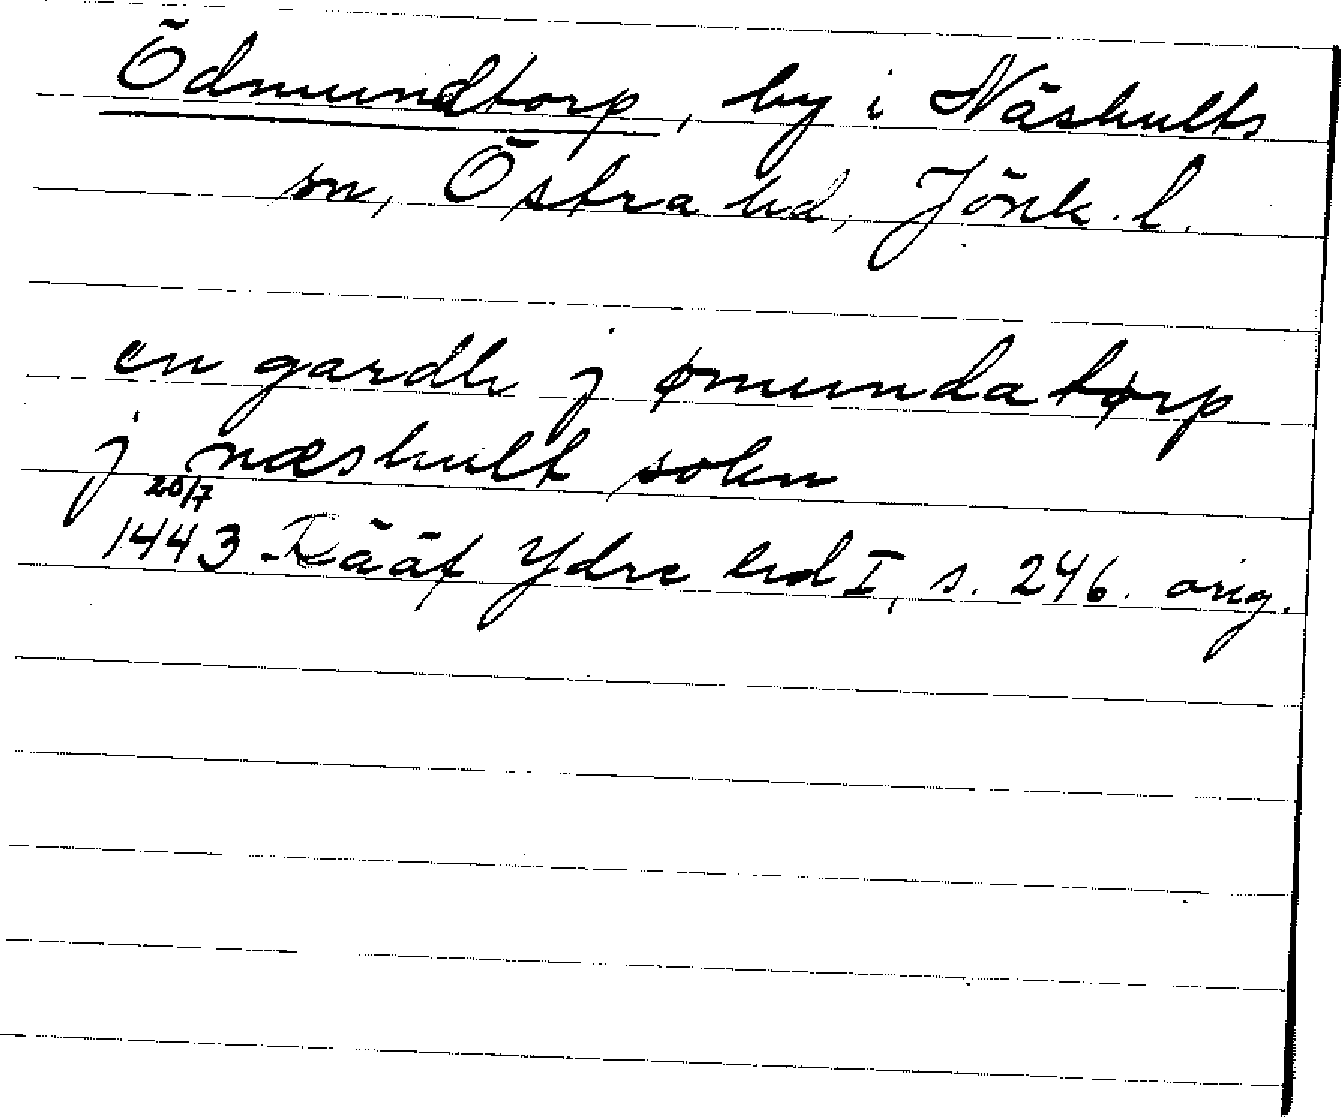 Ödmundtorp, by i Näshults
sn, Östra hd, Jönk. l.
en gardh j ømundatørp
j næshult sokn
20/7
1443 Rääf Ydre hd I, s. 246. orig.